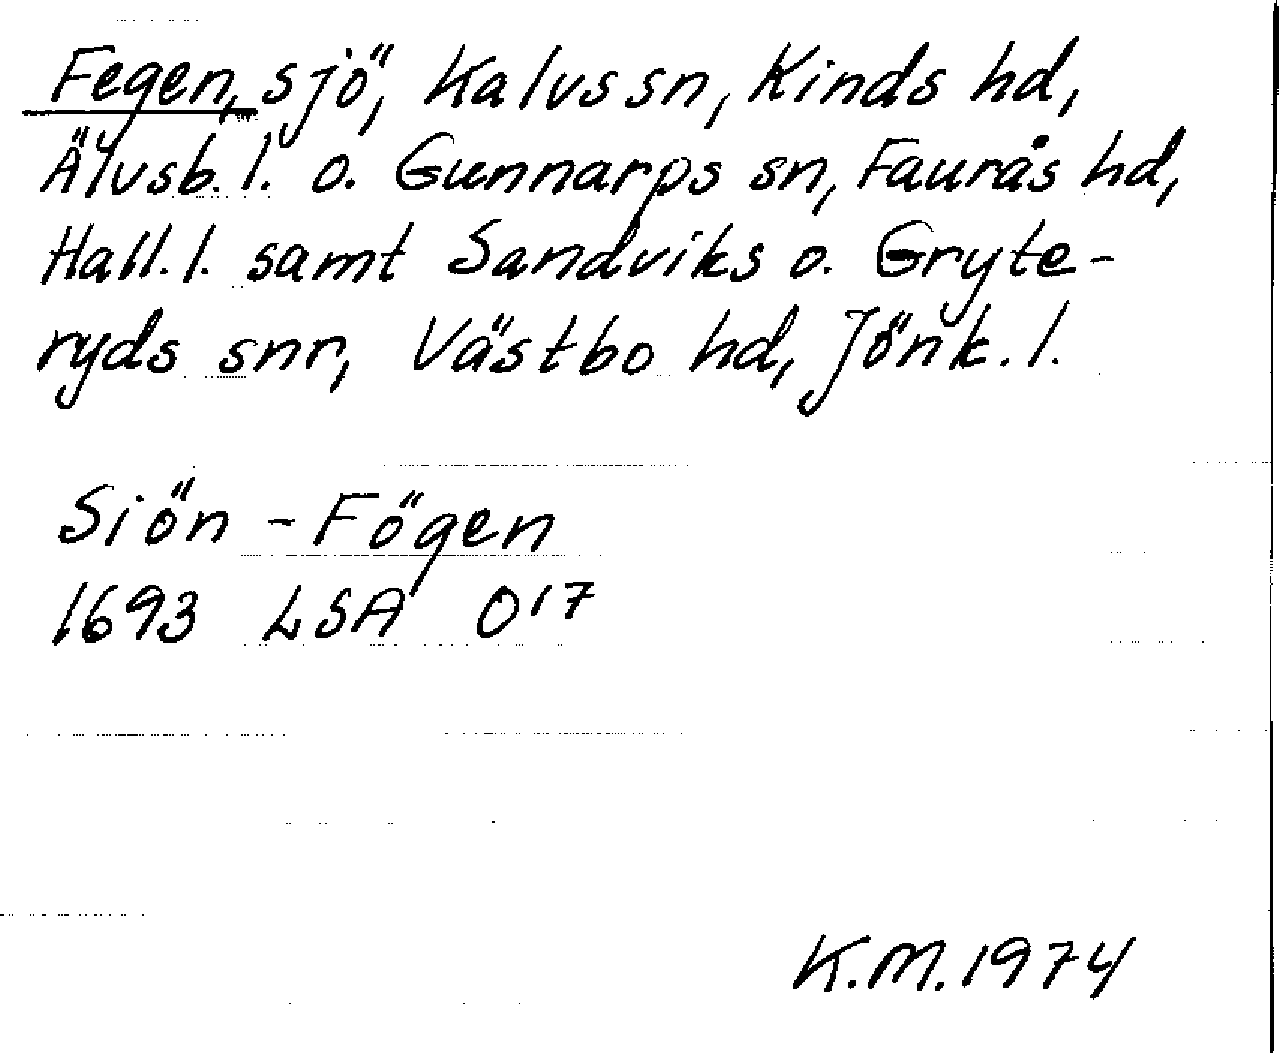 Fegen, sjö, Kalvs sn, Kinds hd,
Älvsb. l. o. Gunnarps sn, Faurås hd,
Hall. l. samt Sandviks o. Gryte-
ryds snr, Västbo hd, Jönk. l.
Siön - Fögen
1693 LSA O17
K.M. 1974